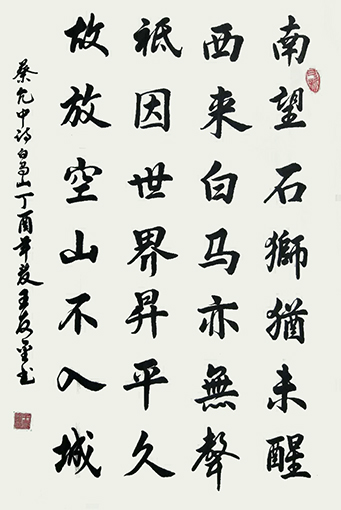 南望石獅猶未醒
西来白马亦無聲
祗因世界昇平久
故放空山不入城
蔡允中诗白马山丁酉年夏王书